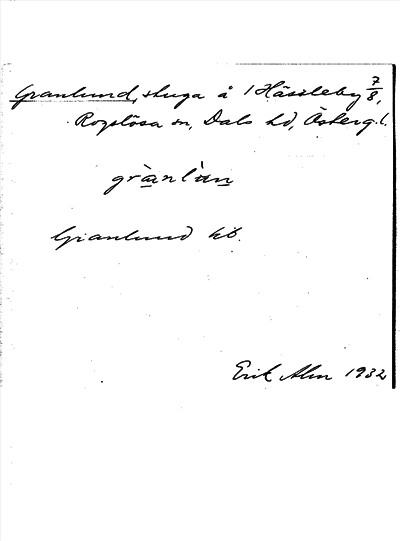 Granlund, stuga å 1 Hässleby 7/8,
Rogslösa sn, Dals hd, Österg.l.
grànlùn
Granlund kb.
Erik Alm 1932